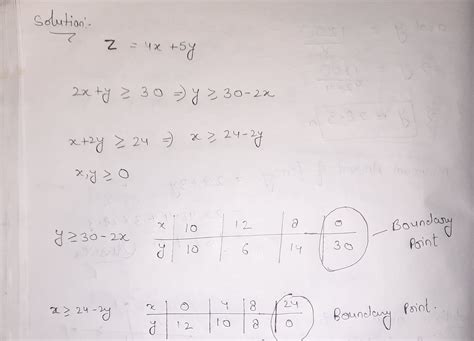 Solution:-
Z = 4x + 5y
2x+y ≥ 30 ⇒ y ≥ 30-2x
x+2y ≥ 24 ⇒ x ≥ 24-2y
x,y ≥ 0
y ≥ 30-2x
x | 10 | 12 | 8 | 0
y | 10 | 6 | 14 | 30
Boundary Point
x ≥ 24-2y
x | 0 | 4 | 8 | 24
y | 12 | 10 | 8 | 0
Boundary Point.